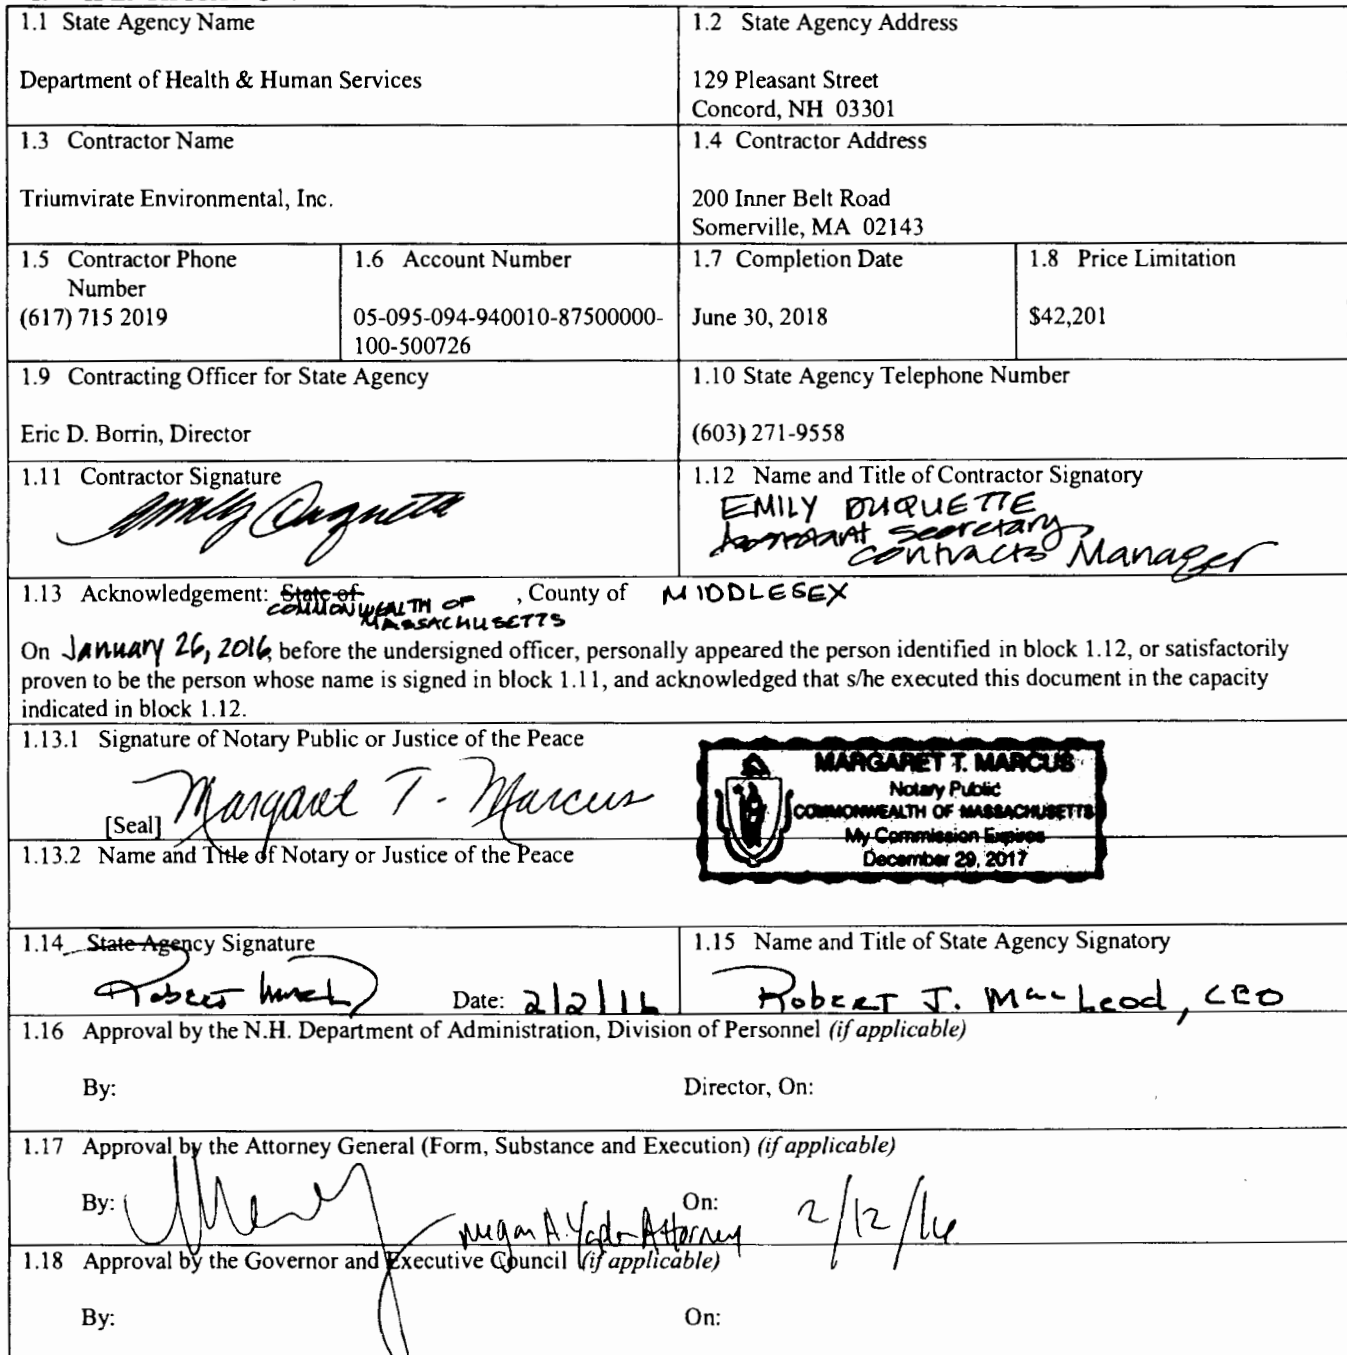 1.1 State Agency Name
Department of Health & Human Services
1.2 State Agency Address
129 Pleasant Street
Concord, NH 03301
1.3 Contractor Name
Triumvirate Environmental, Inc.
1.4 Contractor Address
200 Inner Belt Road
Somerville, MA 02143
1.5 Contractor Phone
Number
(617) 715 2019
1.6 Account Number
05-095-094-940010-87500000-
100-500726
1.7 Completion Date
June 30, 2018
1.8 Price Limitation
$42,201
1.9 Contracting Officer for State Agency
Eric D. Borrin, Director
1.10 State Agency Telephone Number
(603) 271-9558
1.11 Contractor Signature
Emily Duquette
1.12 Name and Title of Contractor Signatory
EMILY DUQUETTE
Assistant Secretary
Contracts Manager
1.13 Acknowledgement: State of , County of MIDDLESEX
COMMONWEALTH OF
MASSACHUSETTS
On January 26, 2016, before the undersigned officer, personally appeared the person identified in block 1.12, or satisfactorily
proven to be the person whose name is signed in block 1.11, and acknowledged that s/he executed this document in the capacity
indicated in block 1.12.
1.13.1 Signature of Notary Public or Justice of the Peace
Margaret T. Marcus
[Seal]
MARGARET T. MARCUS
Notary Public
COMMONWEALTH OF MASSACHUSETTS
My Commission Expires
December 29, 2017
1.13.2 Name and Title of Notary or Justice of the Peace
1.14 State Agency Signature
Date: 2/2/16
1.15 Name and Title of State Agency Signatory
Robert J. MacLeod, CEO
1.16 Approval by the N.H. Department of Administration, Division of Personnel (if applicable)
By: Director, On:
1.17 Approval by the Attorney General (Form, Substance and Execution) (if applicable)
By: Megan A. Yaple - Attorney On: 2/12/16
1.18 Approval by the Governor and Executive Council (if applicable)
By: On: